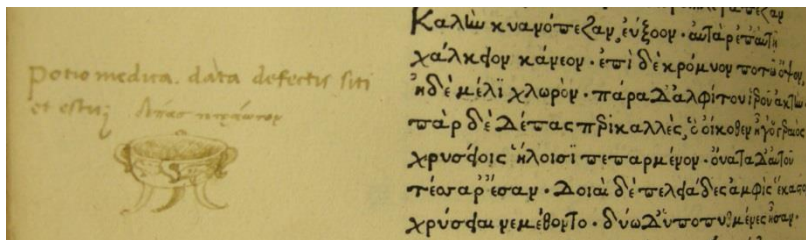 Potio medica. data defectis siti
et estu;
Καλὴν κυανόπεζαν, ἐύξοον· αὐτὰρ ἐπ' αὐτῆ
χάλκειον κάνεον· ἐπὶ δὲ κρόμυον ποτῶ ὄψον,
ἠδὲ μέλι χλωρὸν· παρὰ δ' ἀλφίτου ἱεροῦ ἀκτὴν
πὰρ δὲ δέπας περικαλλὲς, ὃ οἴκοθεν ἦγ' ὁ γεραιὸς
χρυσείοις ἥλοισι πεπαρμένον· οὔατα δ' αὐτοῦ
τέσσαρ' ἔσαν· δοιαὶ δὲ πελειάδες ἀμφὶς ἕκαστον
χρύσειαι νεμέθοντο· δύω δ' ὑπὸ πυθμένες ἦσαν·